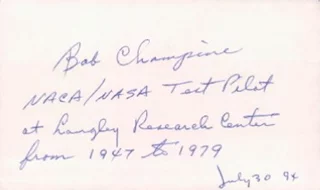 Bob Champine
NACA/NASA Test Pilot
at Langley Research Center
from 1947 to 1979
July 30 94